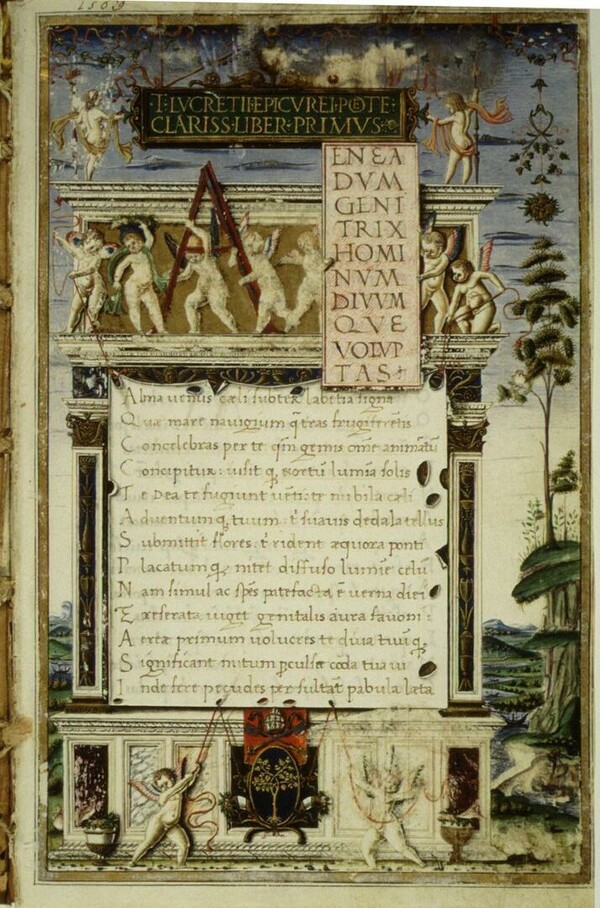 1569
·T·LVCRETII·EPICVREI·POTE·
CLARISS·LIBER·PRIMVS·
A
ENEA
DVM
GENI
TRIX
HOMI
NVM
DIVVM
QVE
VOLVP
TAS
Alma venus cæli subter labentia signa
Quæ mare navigium q̃ tras frugiferentis
Concelebras per te qm̃ genus om̃e animatũ
Concipitur: uisit q; exortũ lumĩa solis
Te Dea te fugiunt vẽti: te nubila cæli
Aduentum q; tuum: t̃ suauis dedala tellus
Submittit flores: t̃ rident æquora ponti
Placatum q; nitet diffuso lumĩe celũ
Nam simul ac spẽs patefacta ẽ verna diei
Exreserata uiget genitalis aura fauoni:
Aereæ primum uoluceres te diua tuũ q;
Significant nitum pculsæ coda tua ui
Inde fere pecudes per sultãt pabula læta